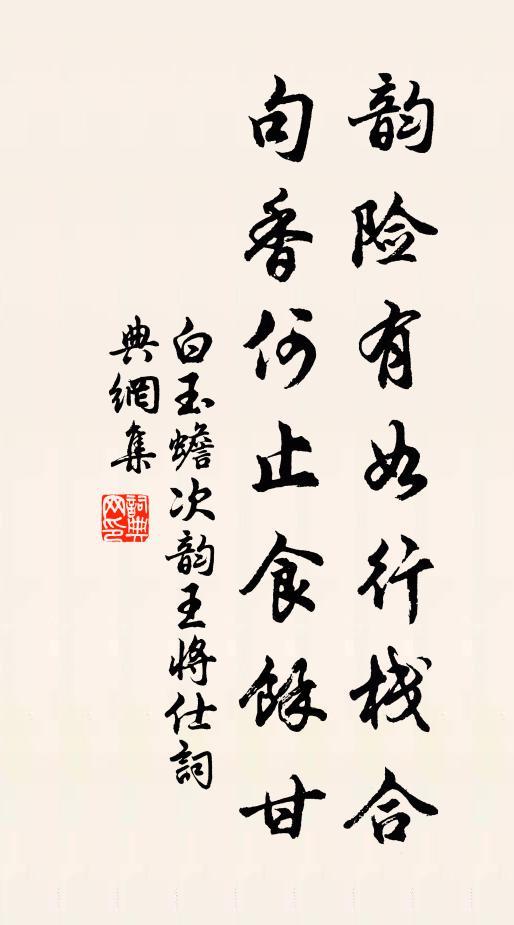 韵险有如行栈合
句香何止食馀甘
白玉蟾次韵王将仕詞
典網集
詞典
网印